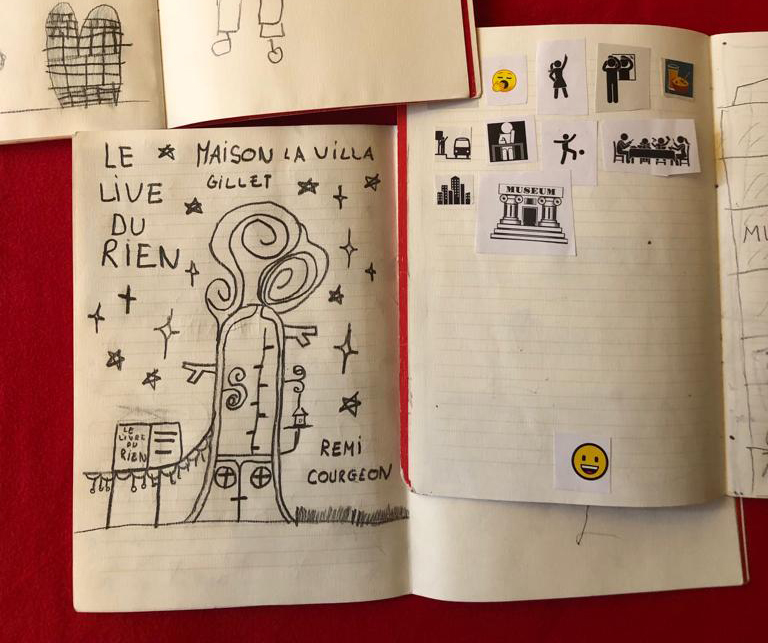 LE ☆ MAISON LA VILLA
GILLET
LIVE
DU
RIEN
LE
LIVRE
DU
RIEN
REMI
COURGEON
MUSEUM